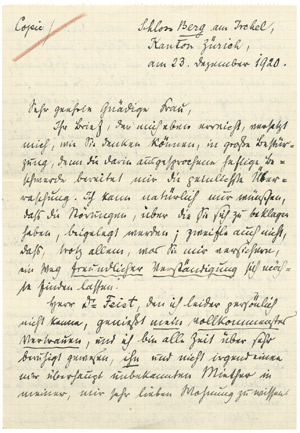 Copie/
Schloss Berg am Irchel,
Kanton Zürich,
am 23. Dezember 1920.
Sehr geehrte Gnädige Frau,
Ihr Brief, der mich eben erreicht, versetzt
mich, wie Sie denken können, in große Bestür-
zung, denn die darin ausgesprochene heftige Be-
schwerde bereitet mir die peinlichste Über-
raschung. Ich kann natürlich nur wünschen,
daß die Störungen, über die Sie sich zu beklagen
haben, beigelegt werden; zweifle auch nicht,
daß, trotz allem, was Sie mir versichern,
ein Weg freundlicher Verständigung sich möch-
te finden lassen.
Herr De Feist, den ich leider persönlich
nicht kenne, genießt mein vollkommenstes
Vertrauen, und ich bin alle Zeit über sehr
beruhigt gewesen, ihn und nicht irgend einen
mir überhaupt unbekannten Miether in
meiner, mir sehr lieben Wohnung zu wissen